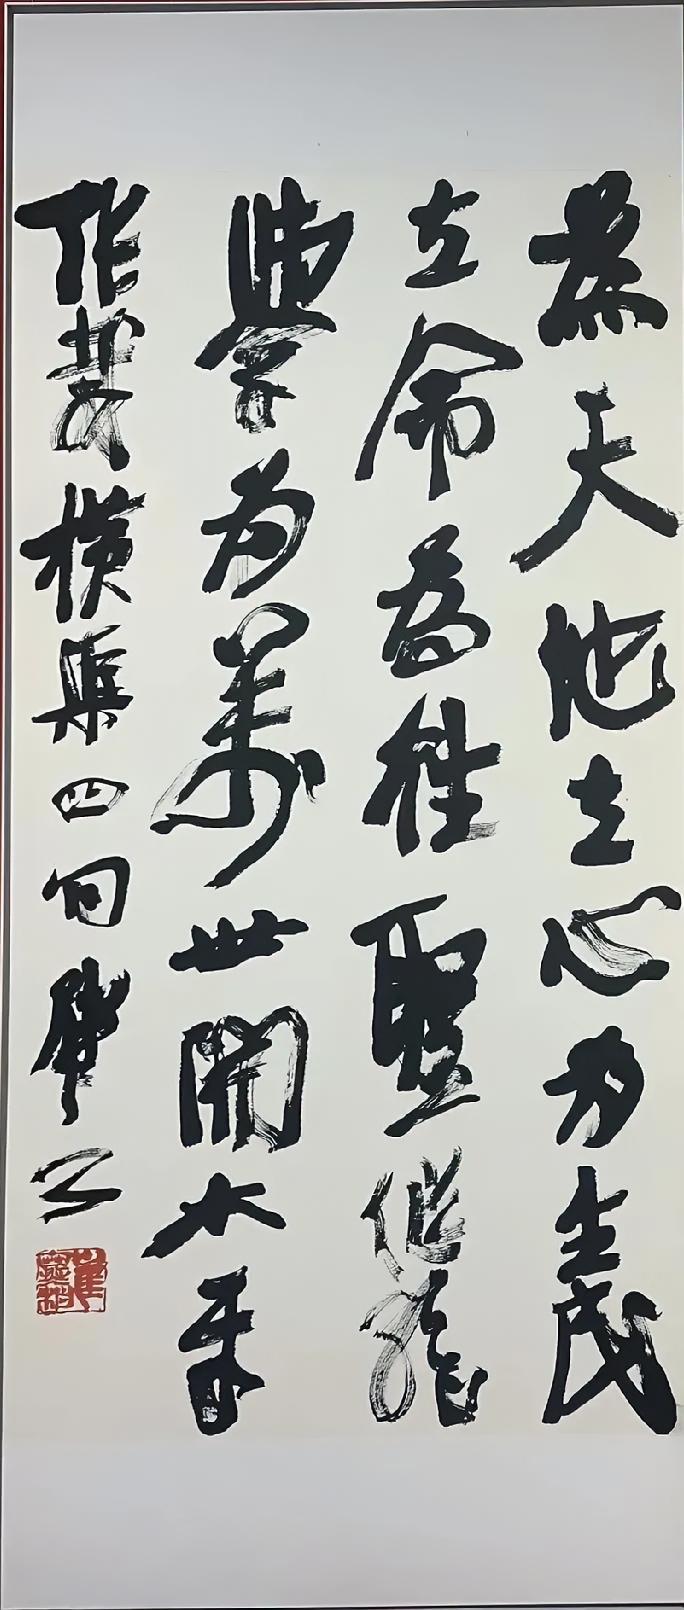 為天地立心为生民
立命為往聖繼絕
學为萬世開太平
張載橫渠四句